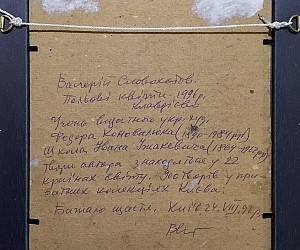 Валерій Словохотов.
Польові квіти 1996р.
Клавдієво
Учень видатного укр. худ.
Федора Коновалюка (1890-1984рр)
Школа Івана Їжакевича (1864-1962рр)
Твори автора знаходяться у 22
країнах світу. 200 творів у при-
ватних колекціях Києва.
Бажаю щастя. Київ 24.VIII.98р.